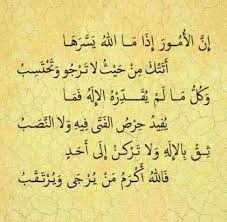 إِنَّ الْأُمُورَ إِذَا مَا اللهُ يَسَّرَهَا
أَتَتْكَ مِنْ حَيْثُ لَا تَرْجُو وَتَحْتَسِبُ
وَكُلُّ مَا لَمْ يُقَدِّرْهُ الْإِلَهُ فَمَا
يُفِيدُ حِرْصُ الْفَتَى فِيهِ وَلَا النَّصَبُ
ثِقْ بِالْإِلَهِ وَلَا تَرْكَنْ إِلَى أَحَدٍ
فَاللهُ أَكْرَمُ مَنْ يُرْجَى وَيُرْتَقَبُ